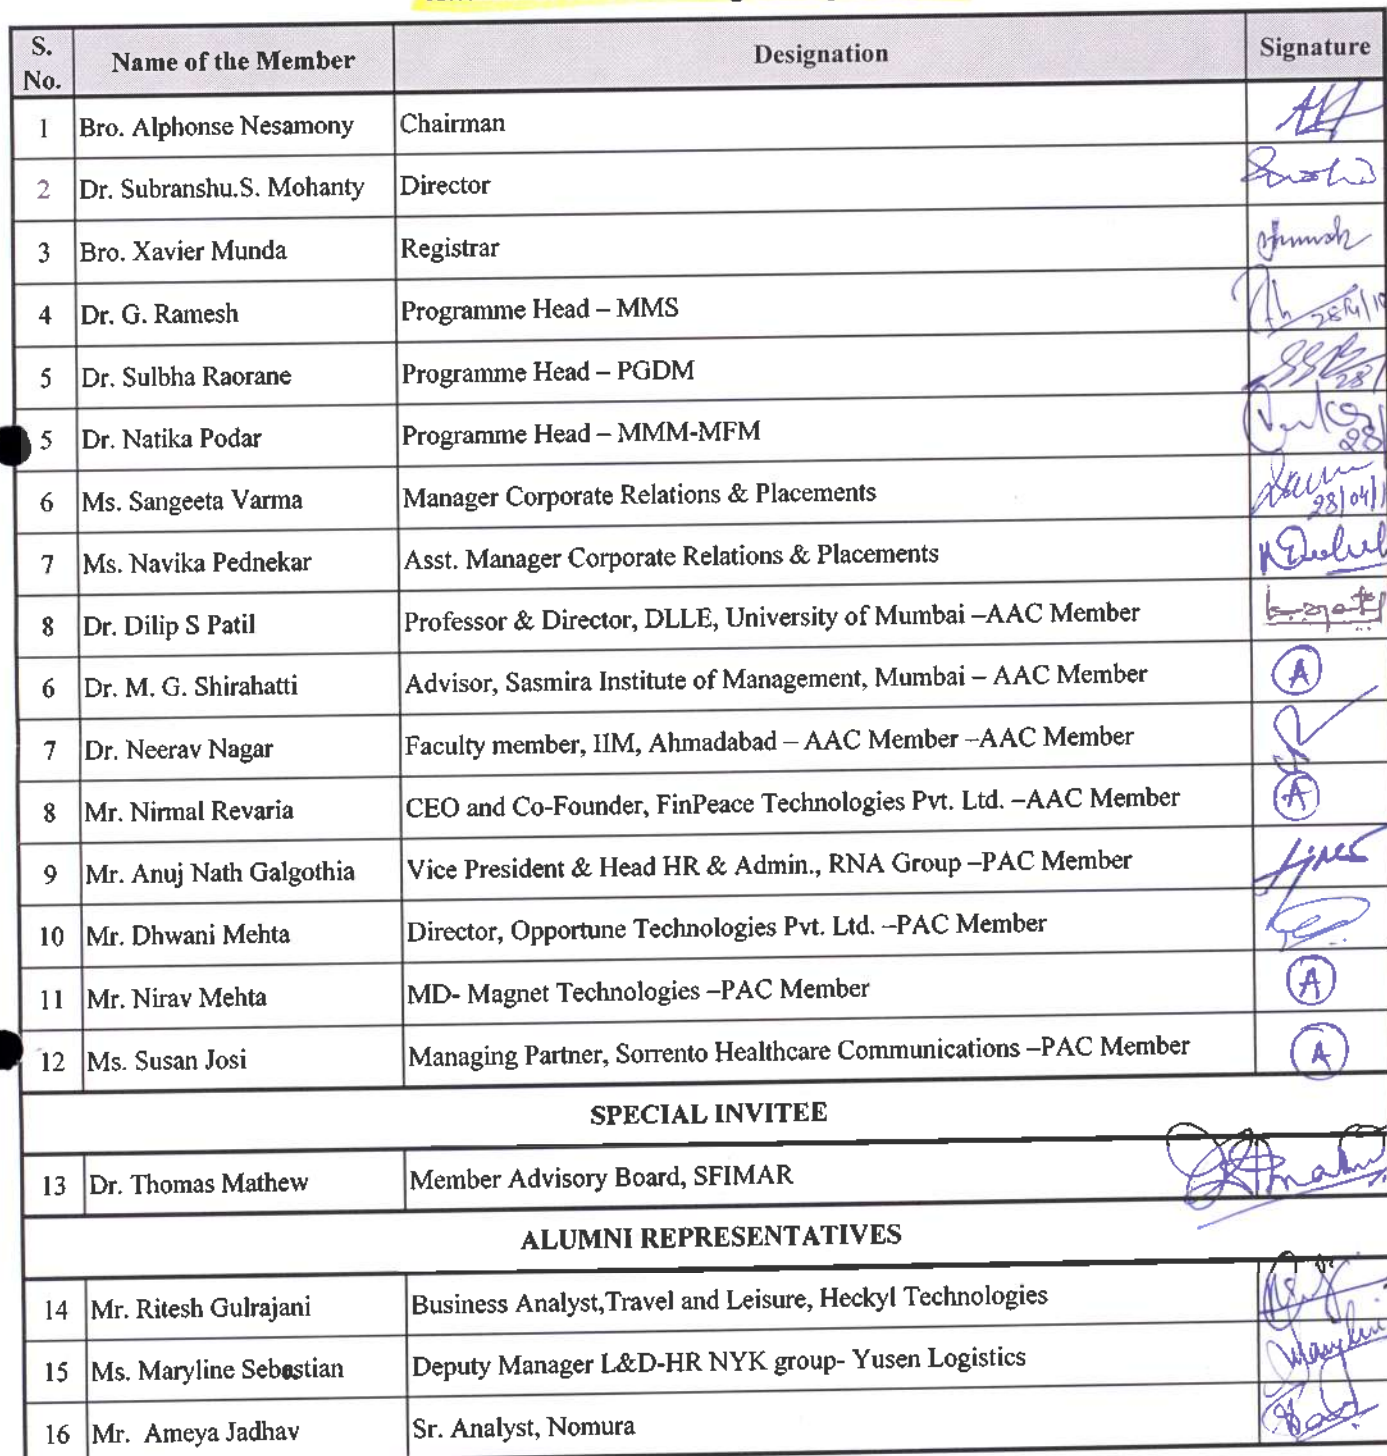 S. No. Name of the Member Designation Signature
1 Bro. Alphonse Nesamony Chairman
2 Dr. Subranshu.S. Mohanty Director
3 Bro. Xavier Munda Registrar
4 Dr. G. Ramesh Programme Head – MMS
5 Dr. Sulbha Raorane Programme Head – PGDM
28
5 Dr. Natika Podar Programme Head – MMM-MFM
28
6 Ms. Sangeeta Varma Manager Corporate Relations & Placements
28/04/1
7 Ms. Navika Pednekar Asst. Manager Corporate Relations & Placements
8 Dr. Dilip S Patil Professor & Director, DLLE, University of Mumbai –AAC Member
6 Dr. M. G. Shirahatti Advisor, Sasmira Institute of Management, Mumbai – AAC Member A
7 Dr. Neerav Nagar Faculty member, IIM, Ahmadabad – AAC Member –AAC Member
8 Mr. Nirmal Revaria CEO and Co-Founder, FinPeace Technologies Pvt. Ltd. –AAC Member A
9 Mr. Anuj Nath Galgothia Vice President & Head HR & Admin., RNA Group –PAC Member
10 Mr. Dhwani Mehta Director, Opportune Technologies Pvt. Ltd. –PAC Member
11 Mr. Nirav Mehta MD- Magnet Technologies –PAC Member A
12 Ms. Susan Josi Managing Partner, Sorrento Healthcare Communications –PAC Member A
SPECIAL INVITEE
13 Dr. Thomas Mathew Member Advisory Board, SFIMAR
ALUMNI REPRESENTATIVES
14 Mr. Ritesh Gulrajani Business Analyst,Travel and Leisure, Heckyl Technologies
15 Ms. Maryline Sebastian Deputy Manager L&D-HR NYK group- Yusen Logistics
16 Mr. Ameya Jadhav Sr. Analyst, Nomura